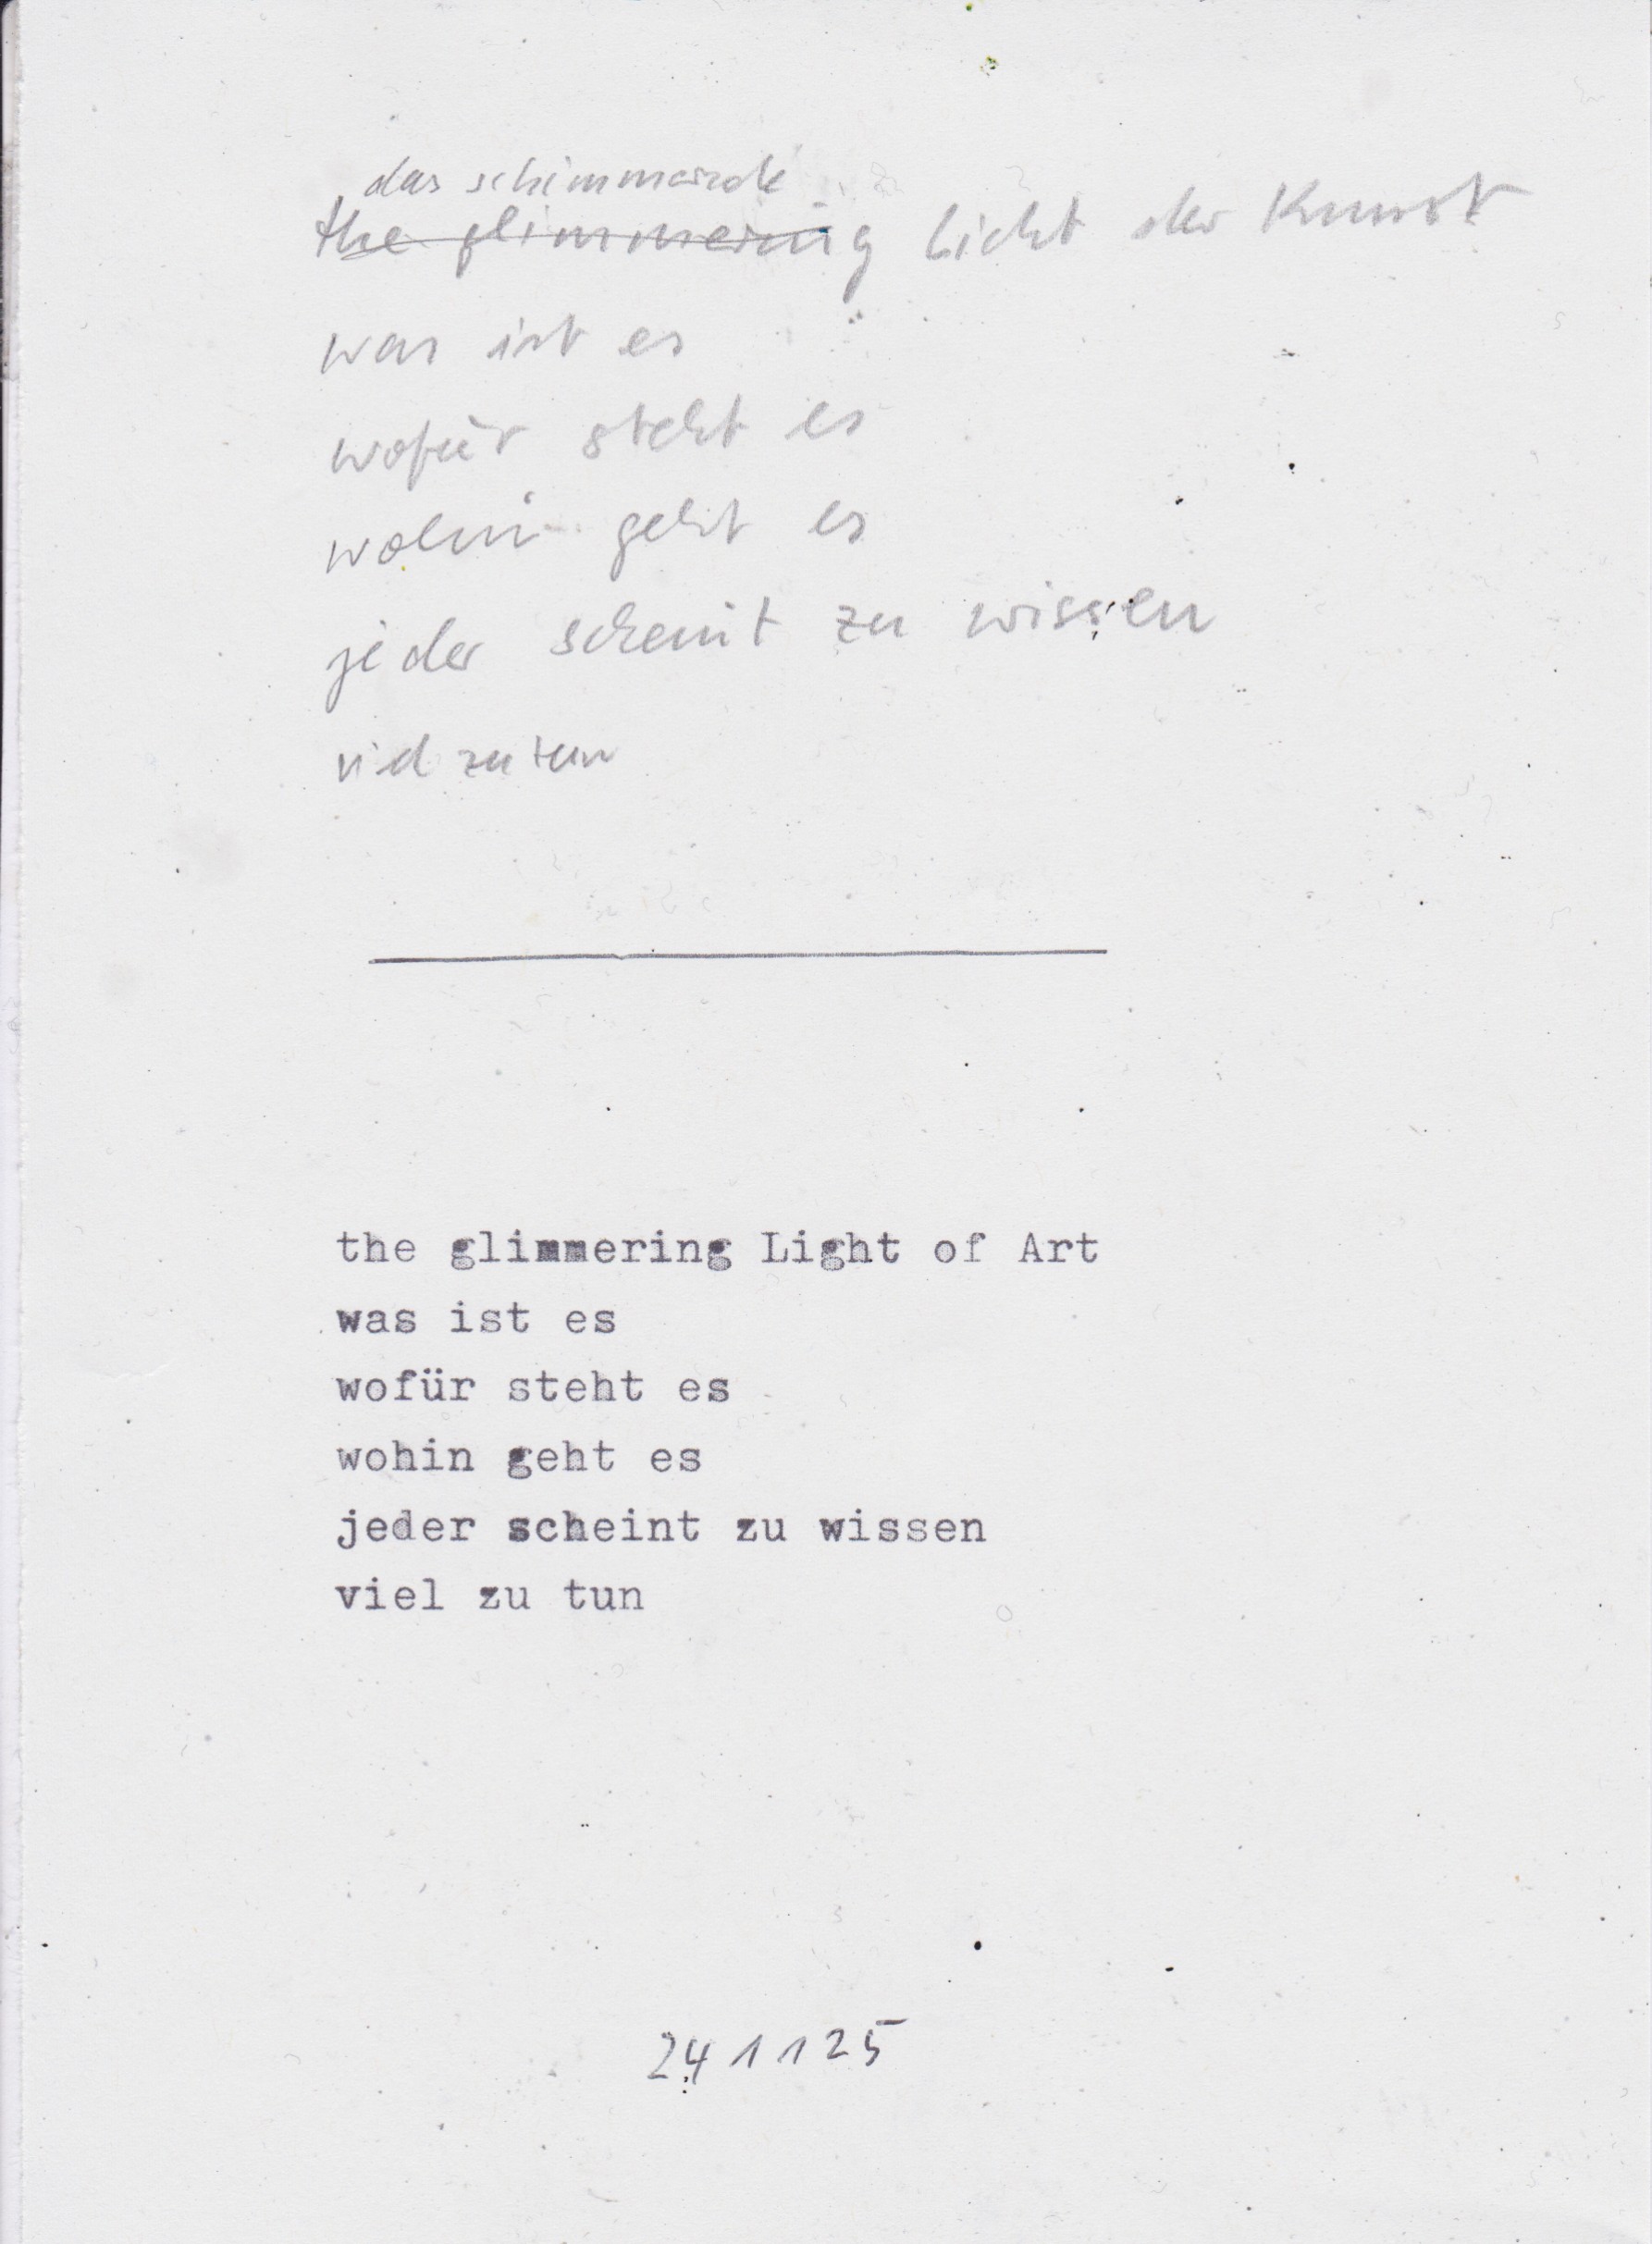 das schimmernde
the glimmering Licht der Kunst
was ist es
wofür steht es
wohin geht es
jeder scheint zu wissen
viel zu tun
the glimmering Light of Art
was ist es
wofür steht es
wohin geht es
jeder scheint zu wissen
viel zu tun
241125